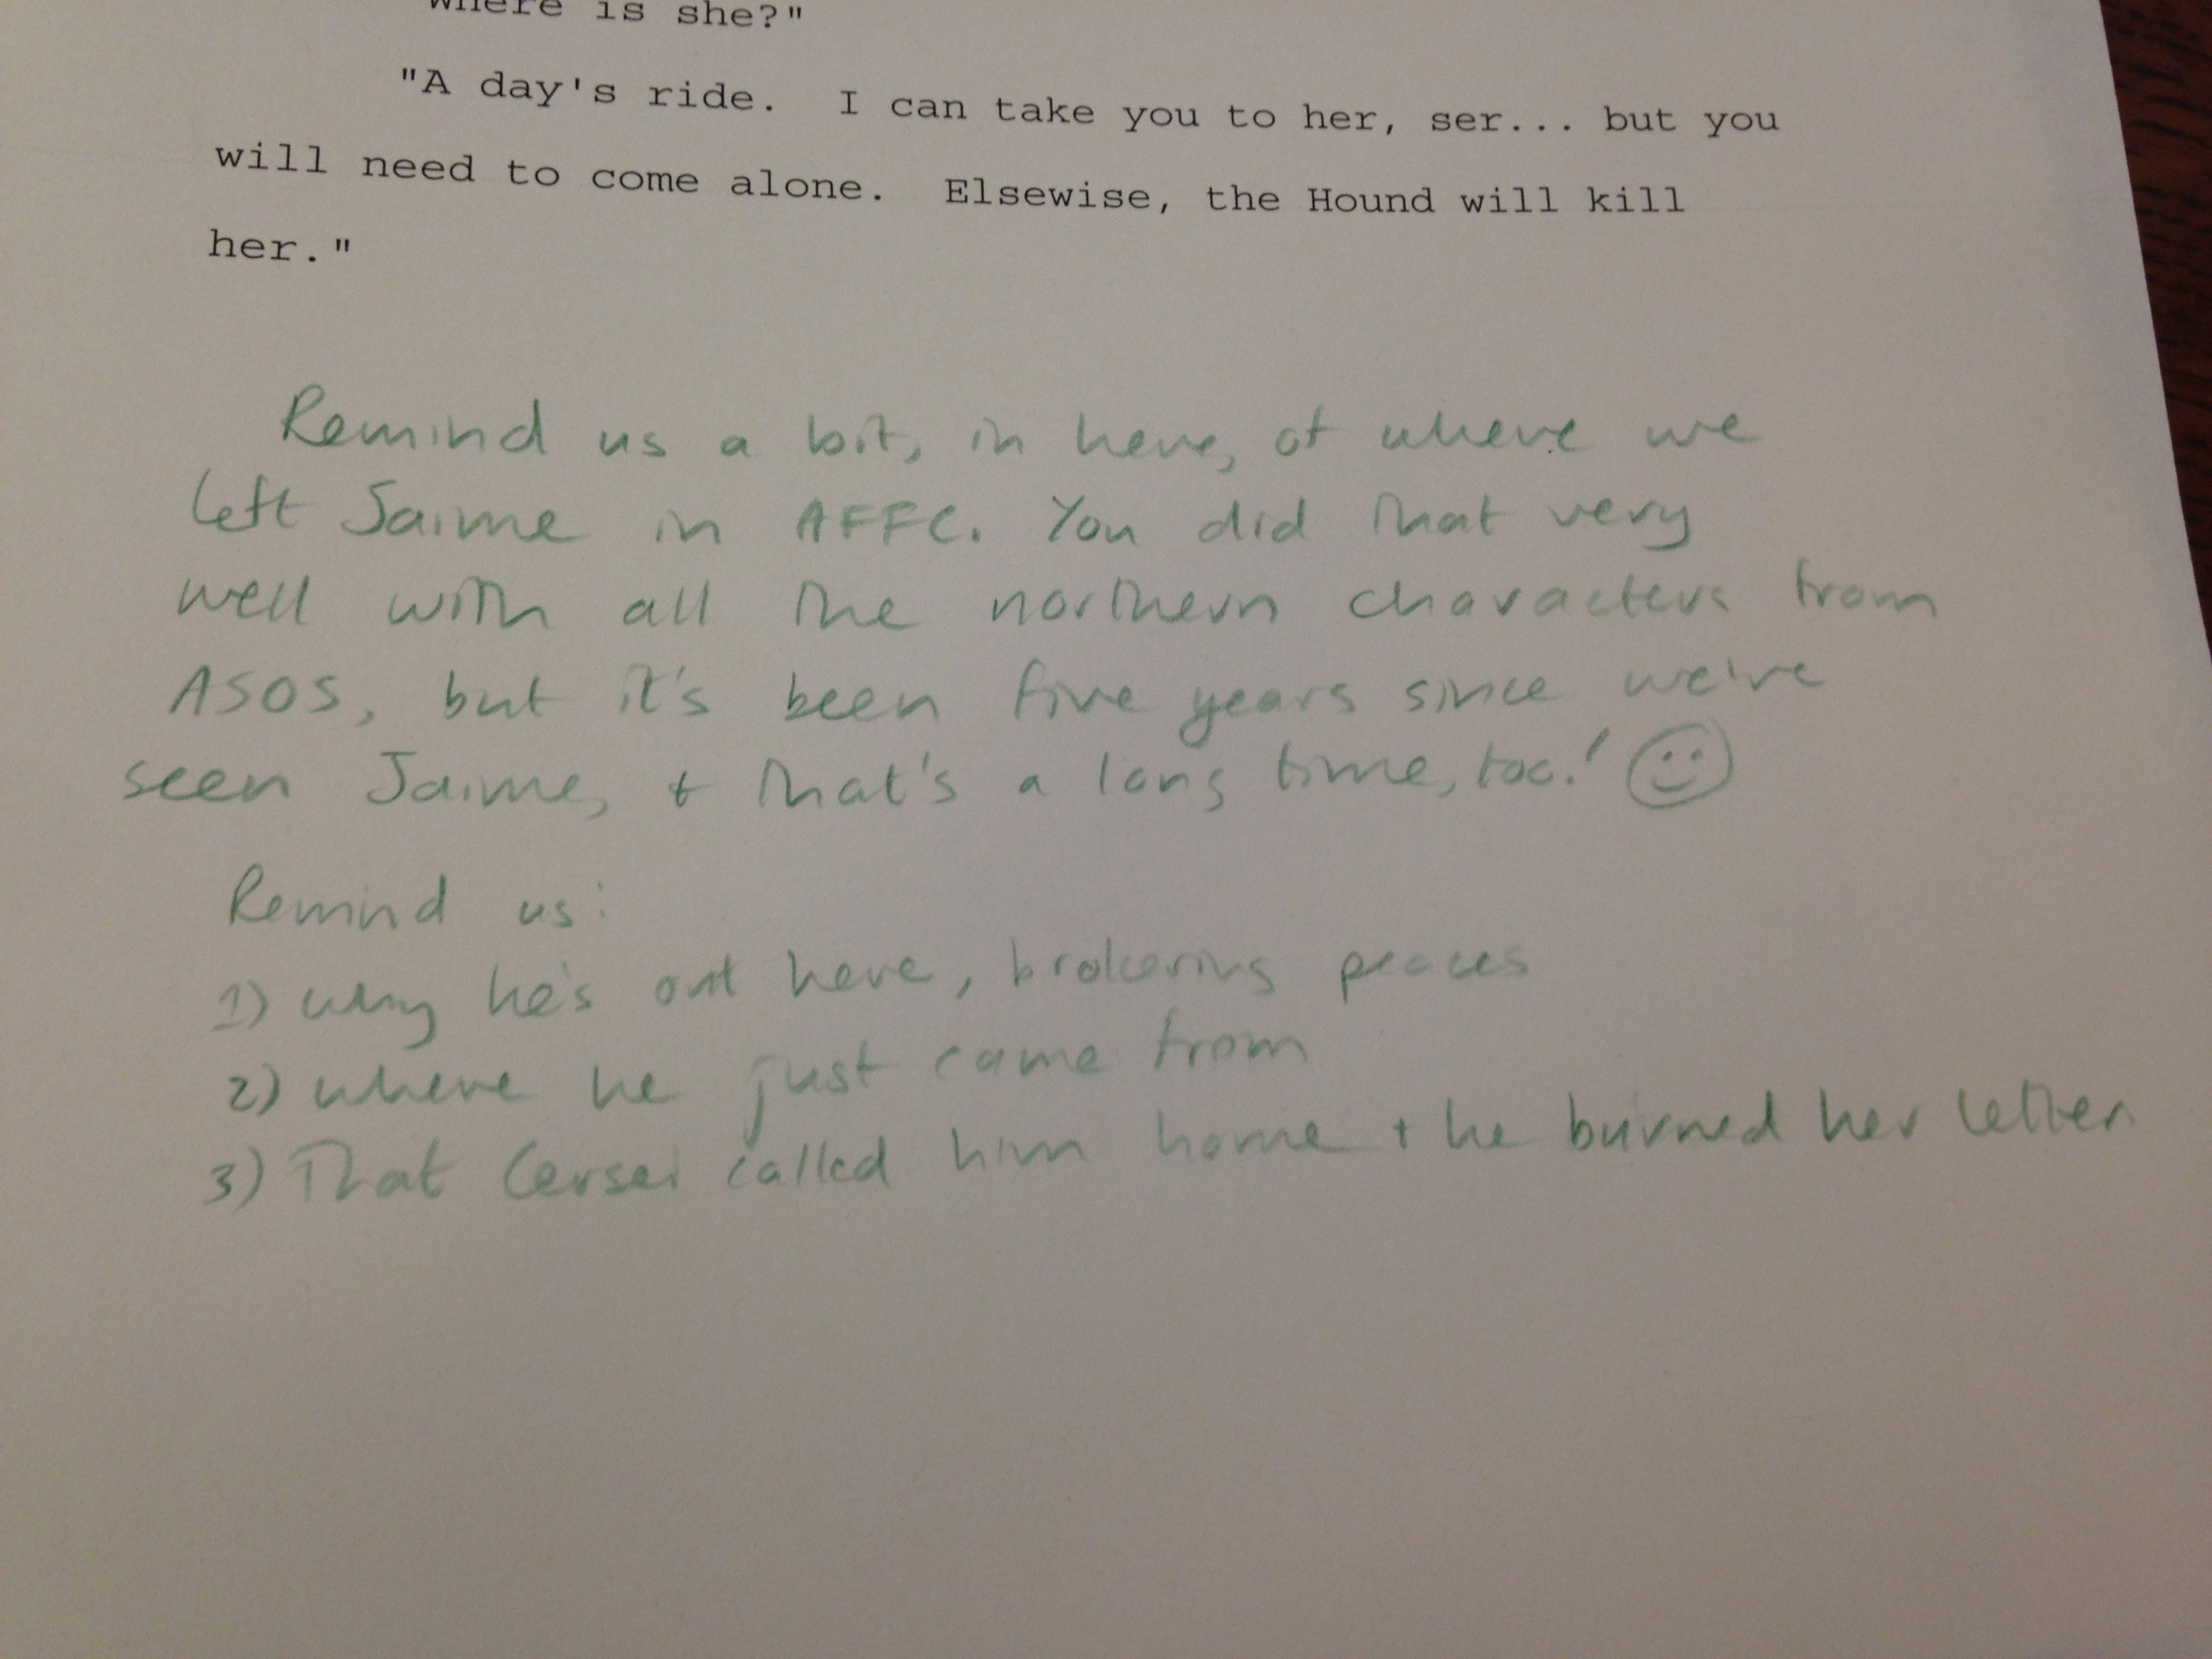 "Where is she?"
"A day's ride.  I can take you to her, ser... but you
will need to come alone.  Elsewise, the Hound will kill
her."
Remind us a bit, in here, of where we
left Jaime in AFFC. You did that very
well with all the northern characters from
ASOS, but it's been five years since we've
seen Jaime, & that's a long time, too! ☺
Remind us:
1) why he's out here, brokering peaces
2) where he just came from
3) That Cersei called him home + he burned her letter.